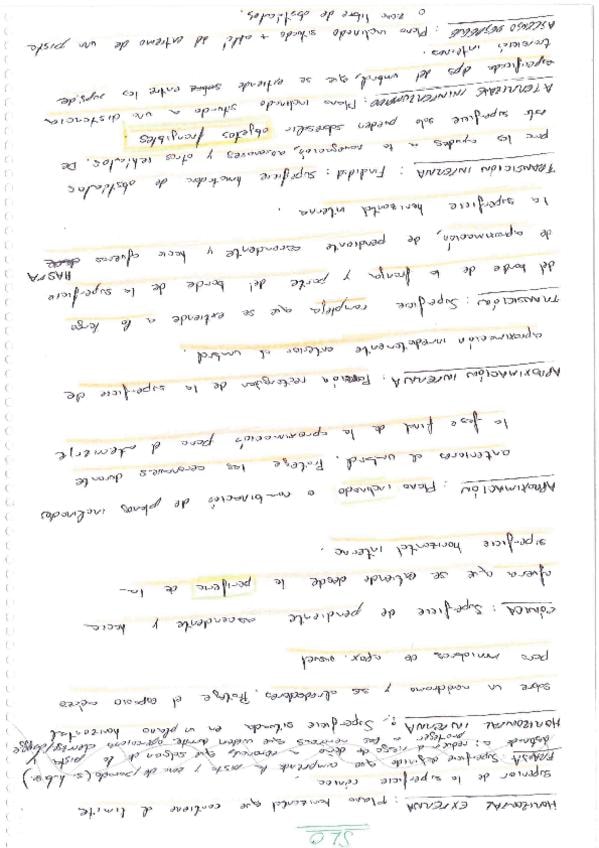 SLO
HORIZONTAL EXTERNA: Plano horizontal que contiene el límite
superior de la superficie cónica
FRANJA Superficie definida que comprende la pista y zona de parada (si hubiera)
destinada a: reducir el riesgo de daños a aeronaves que salgan de la pista y
proteger a las aeronaves que
HORIZONTAL INTERNA: Superficie situada en un plano horizontal
sobre un aeródromo y sus alrededores. Protege el espacio aéreo
para maniobras de apox. visual
CÓNICA: Superficie de pendiente ascendente y hacia
afuera que se extiende desde la periferia de la
superficie horizontal interna.
APROXIMACIÓN: Plano inclinado o combinación de planos inclinados
anteriores al umbral. Protege las aeronaves durante
la fase final de la aproximación para el aterrizaje
APROXIMACIÓN INTERNA: Porción rectangular de la superficie de
aproximación inmediatamente anterior al umbral.
TRANSICIÓN: Superficie compleja que se extiende a lo largo
del borde de la franja y parte del borde de la superficie
de aproximación, de pendiente ascendente y hacia afuera HASTA
la superficie horizontal interna.
TRANSICIÓN INTERNA: Finalidad: superficie limitadora de obstáculos
para las ayudas a la navegación, aeronaves y otros vehículos. De
esta superficie solo pueden sobresalir objetos frangibles.
ATERRIZAJE ININTERRUMPIDO: Plano inclinado situado a una distancia
especificada dps del umbral, que se extiende entre las sups. de
transición internas.
ASCENSO DESPEGUE: Plano inclinado situado + allá del extremo de una pista
o zona libre de obstáculos.